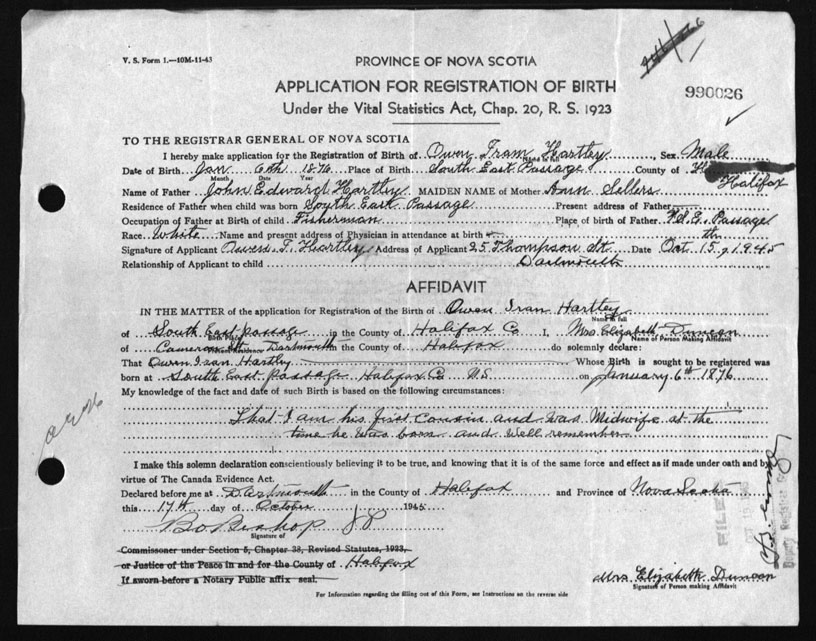 V. S. Form 1.—10M-11-43
PROVINCE OF NOVA SCOTIA
APPLICATION FOR REGISTRATION OF BIRTH
990026
Under the Vital Statistics Act, Chap. 20, R. S. 1923
TO THE REGISTRAR GENERAL OF NOVA SCOTIA
I hereby make application for the Registration of Birth of Owen Hartley, Sex Male
Name in full
Date of Birth Jan 6th 1876 Place of Birth South East Passage County of
Month Date Year
Halifax
Name of Father John Edward Hartley MAIDEN NAME of Mother Ann Sellers
Residence of Father when child was born South East Passage Present address of Father
Occupation of Father at Birth of child Fisherman Place of birth of Father E. Passage
Race White Name and present address of Physician in attendance at birth
Signature of Applicant Owen T. Hartley Address of Applicant 25 Thompson St. Date Oct 15th 1945
Relationship of Applicant to child Dartmouth
AFFIDAVIT
IN THE MATTER of the application for Registration of the Birth of Owen Hartley
Name in full
of South East Passage in the County of Halifax Co I, Mrs. Elizabeth Duncan
Birth Place
Name of Person Making Affidavit
of Cameron St Dartmouth in the County of Halifax do solemnly declare:
Residence
That Owen Hartley Whose Birth is sought to be registered was
born at South East Passage Halifax Co N.S on January 6th 1876
My knowledge of the fact and date of such Birth is based on the following circumstances:
That I am his first cousin and was Midwife at the
time he was born and well remember
I make this solemn declaration conscientiously believing it to be true, and knowing that it is of the same force and effect as if made under oath and by
virtue of The Canada Evidence Act.
Declared before me at Dartmouth in the County of Halifax and Province of Nova Scotia
this 17th day of October 1945
Bishop J P
Signature of
Commissioner under Section 5, Chapter 38, Revised Statutes, 1923,
or Justice of the Peace in and for the County of Halifax
If sworn before a Notary Public affix seal.
Mrs Elizabeth Duncan
Signature of Person making Affidavit
For Information regarding the filling out of this Form, see Instructions on the reverse side